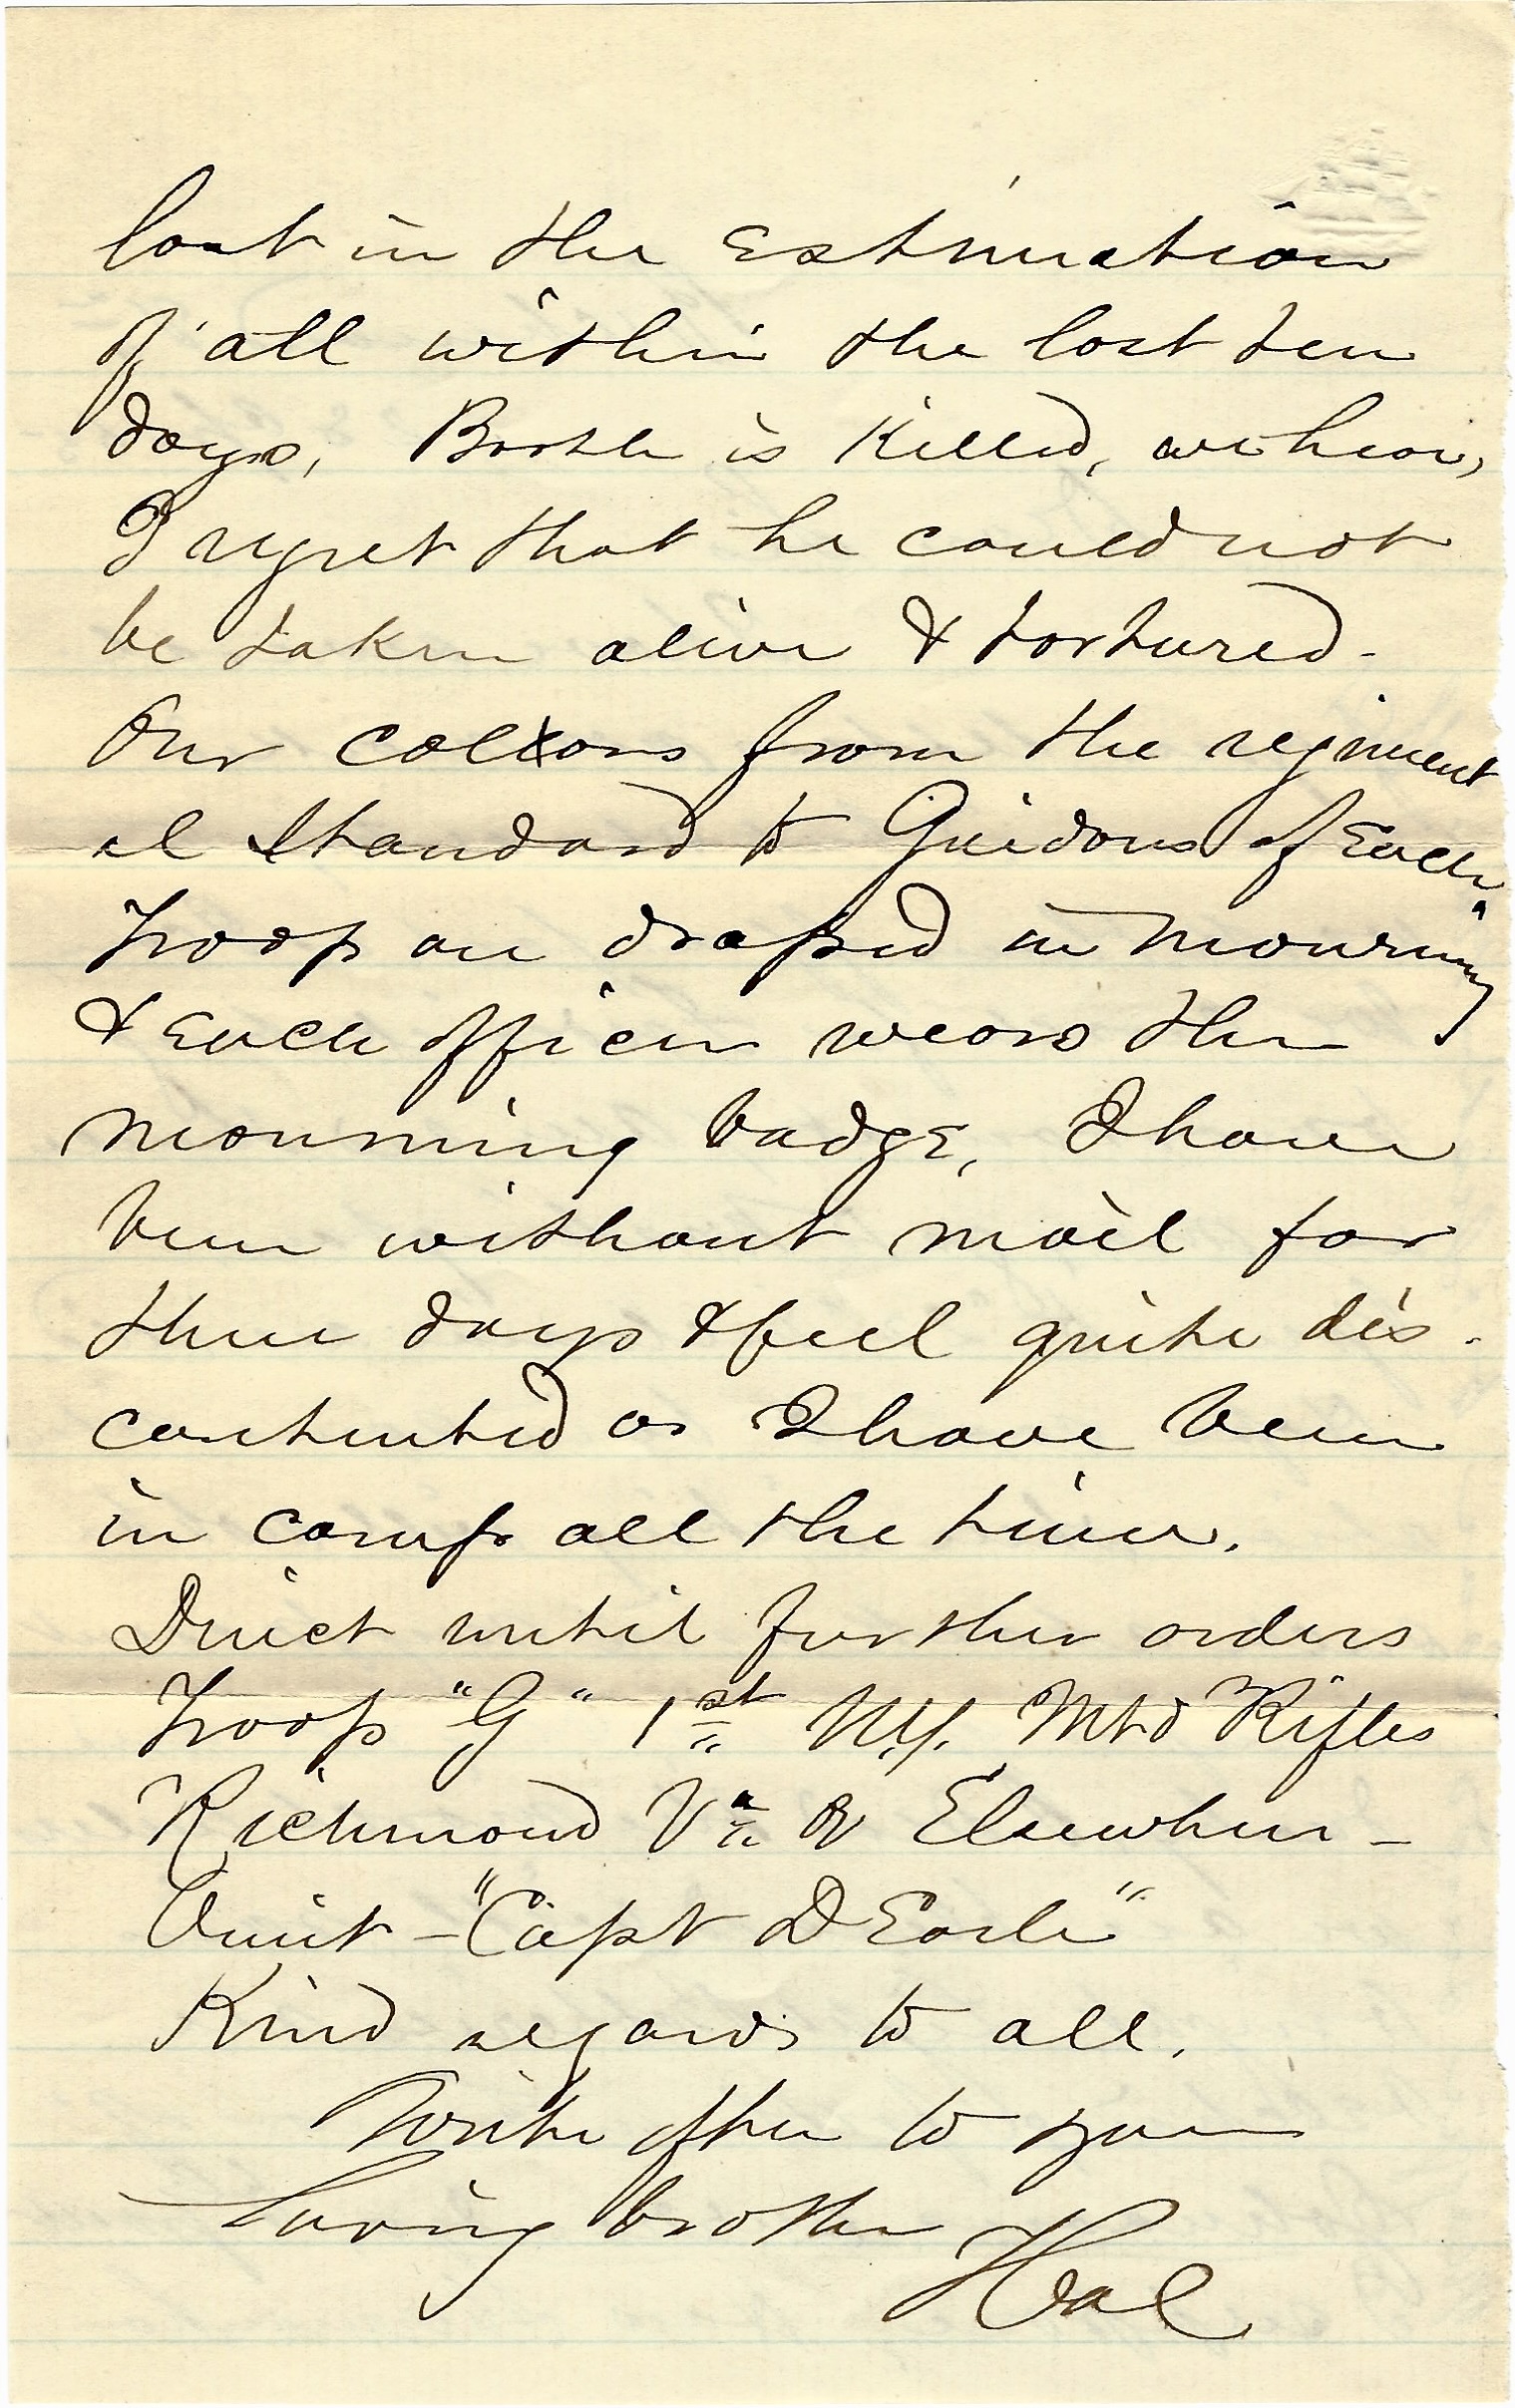 lost in the Estimation
of all within the last ten
days, Booth is Killed, we hear,
I regret that he could not
be taken alive & tortured -
Our colors from the regiment
al Standard to Guidons of Each
Troop are draped in mourning
& Each officer wears the
mourning badge, I have
been without mail for
three days & feel quite dis-
contented as I have been
in camp all the time.
Direct until further orders
Troop "G" 1st N.Y. Mtd Rifles
Richmond Va or Elsewhere -
Omit - "Capt D Earle"
Kind regards to all.
Write often to your
loving brother
Hal